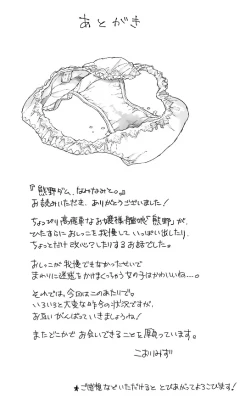 あとがき
『熊野ダム、なみなみと。』
お読みいただき、ありがとうございました！
ちょっぴり高飛車なお嬢様艦娘「熊野」が、
ひたすらにおしっこを我慢していっぱい出したり、
ちょっとだけ改心？したりするお話でした。
おしっこが我慢できなかったせいで
まわりに迷惑をかけまくっちゃう女の子はかわいいね…。
それでは、今回はこのあたりで。
いろいろと大変な昨今の状況ですが、
お互いがんばっていきましょうね！
またどこかでお会いできることを願っています。
こおりみず
★ご感想などいただけるととびあがってよろこびます！